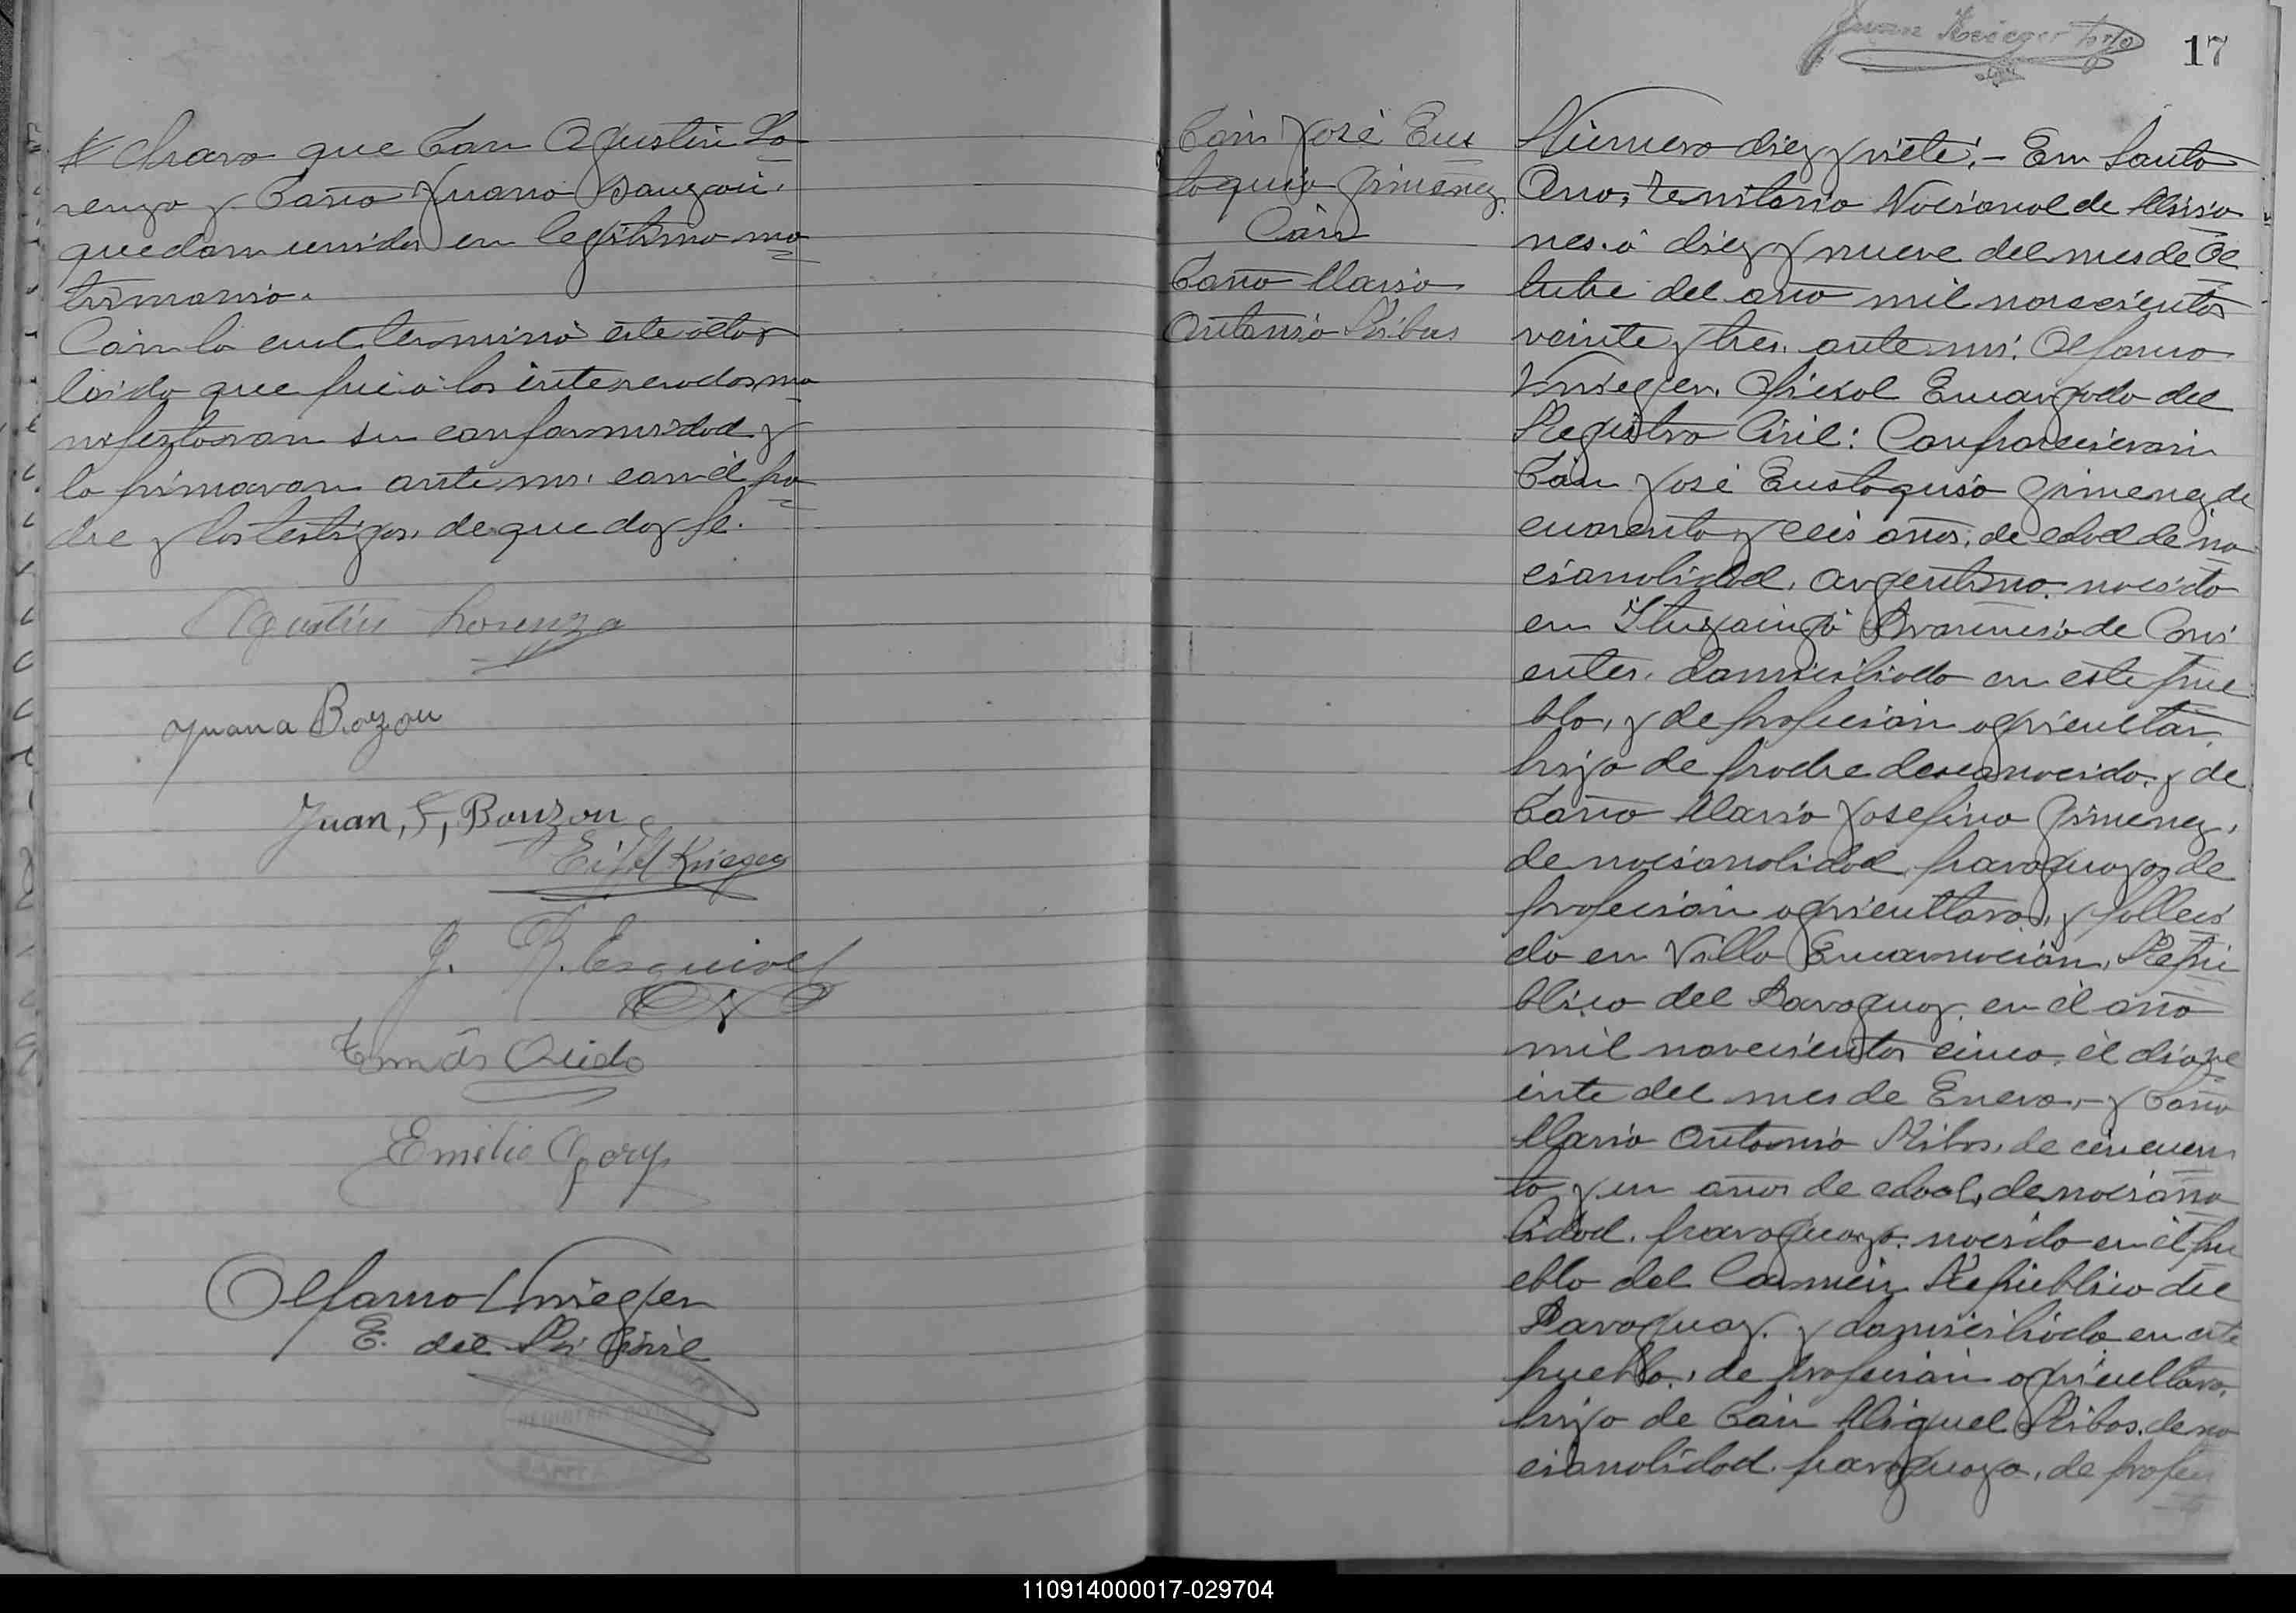 charo que Don Agustin Lo
renzo y Doña Juana Bauzon.
quedan unidos en legitimo ma
trimonio.
Con lo cual termino este acto y
leido que fué á los interesados ma
nifestaron su conformidad y
lo firmaron ante mi. con el pa
dre y los testigos, de que doy fe.
Agustin Lorenzo
Juana Bozon
Juan, F, Bouzon
Krieger
J. R. Esquivel
Tomás Ojeda
Emilio
Olfamo Krieger
E. del Rj Civil
REGISTRO CIVIL
17
Don José Eus
toquio Jimenez.
Con
Doña Maria
Antonia Ribas
Número diez y siete.- En Santa
Ana, Territorio Nacional de Misio
nes. á diez y nueve del mes de Oc
tubre del año mil novecientos
veinte y tres. ante mi: Olfamo
Krieger. Oficial Encargado del
Registro Civil: Comparecieron
Don José Eustoquio Jimenez de
cuarenta y ceis años, de edad de na
cionalidad, argentino. nacido
en Ituzaingó Provincia de Corri
entes. domiciliado en este pue
blo, y de profesion agricultor.
hijo de padre desconocido. y de
Doña Maria Josefina Jimenez,
de nacionalidad paraguaya, de
profesión agricultora, y falleci
da en Villa Encarnación, Repú
blica del Paraguay. en el año
mil novecientos cinco. el dia ve
inte del mes de Enero,- y Doña
Maria Antonia Ribas, de cincuen
ta y un años de edad, de naciona
lidad. paraguaya. nacida en el pu
eblo del Carmen República del
Paraguay. y domiciliada en este
pueblo., de profesion agricultora.
hija de Don Miguel Ribas. de na
cionalidad. paraguaya, de profeci
110914000017-029704